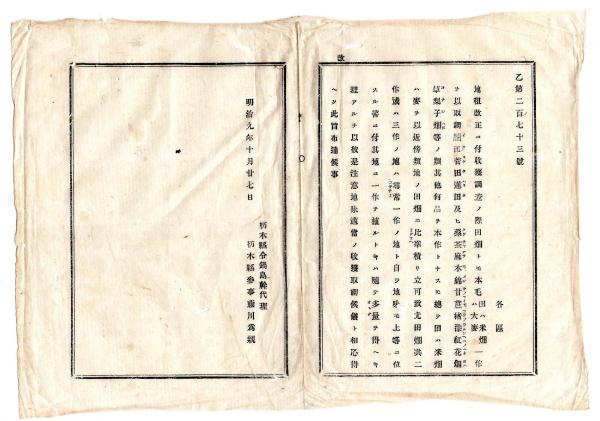 改
乙第二百七十三號
各區
地租改正ニ付收穫調査ノ際田畑トモ本毛田ハ米畑ハ大麥一作
ヲ以取調藺田菅田蓮田及ヒ桑茶麻木綿甘蔗楮漆紅花烟
草菜子烟等ノ類其他何品ヲ本作トナスモ總テ田ハ米畑
ハ麥ヲ以近傍類地ノ田畑ニ比準積リ立可致尤田畑共二
作或ハ三作ノ地ハ尋常一作ノ地ト自ラ地味モ上等ニ位
スル筈ニ付其地ニ一作ヲ植ルトキハ隨テ多量ヲ得ヘキ
理アルヲ以故是注意地味適當ノ收穫取調候儀ト相心得
ヘシ此旨布達候事
明治九年十月廿七日
栃木縣令鍋島幹代理
栃木縣參事藤川爲親